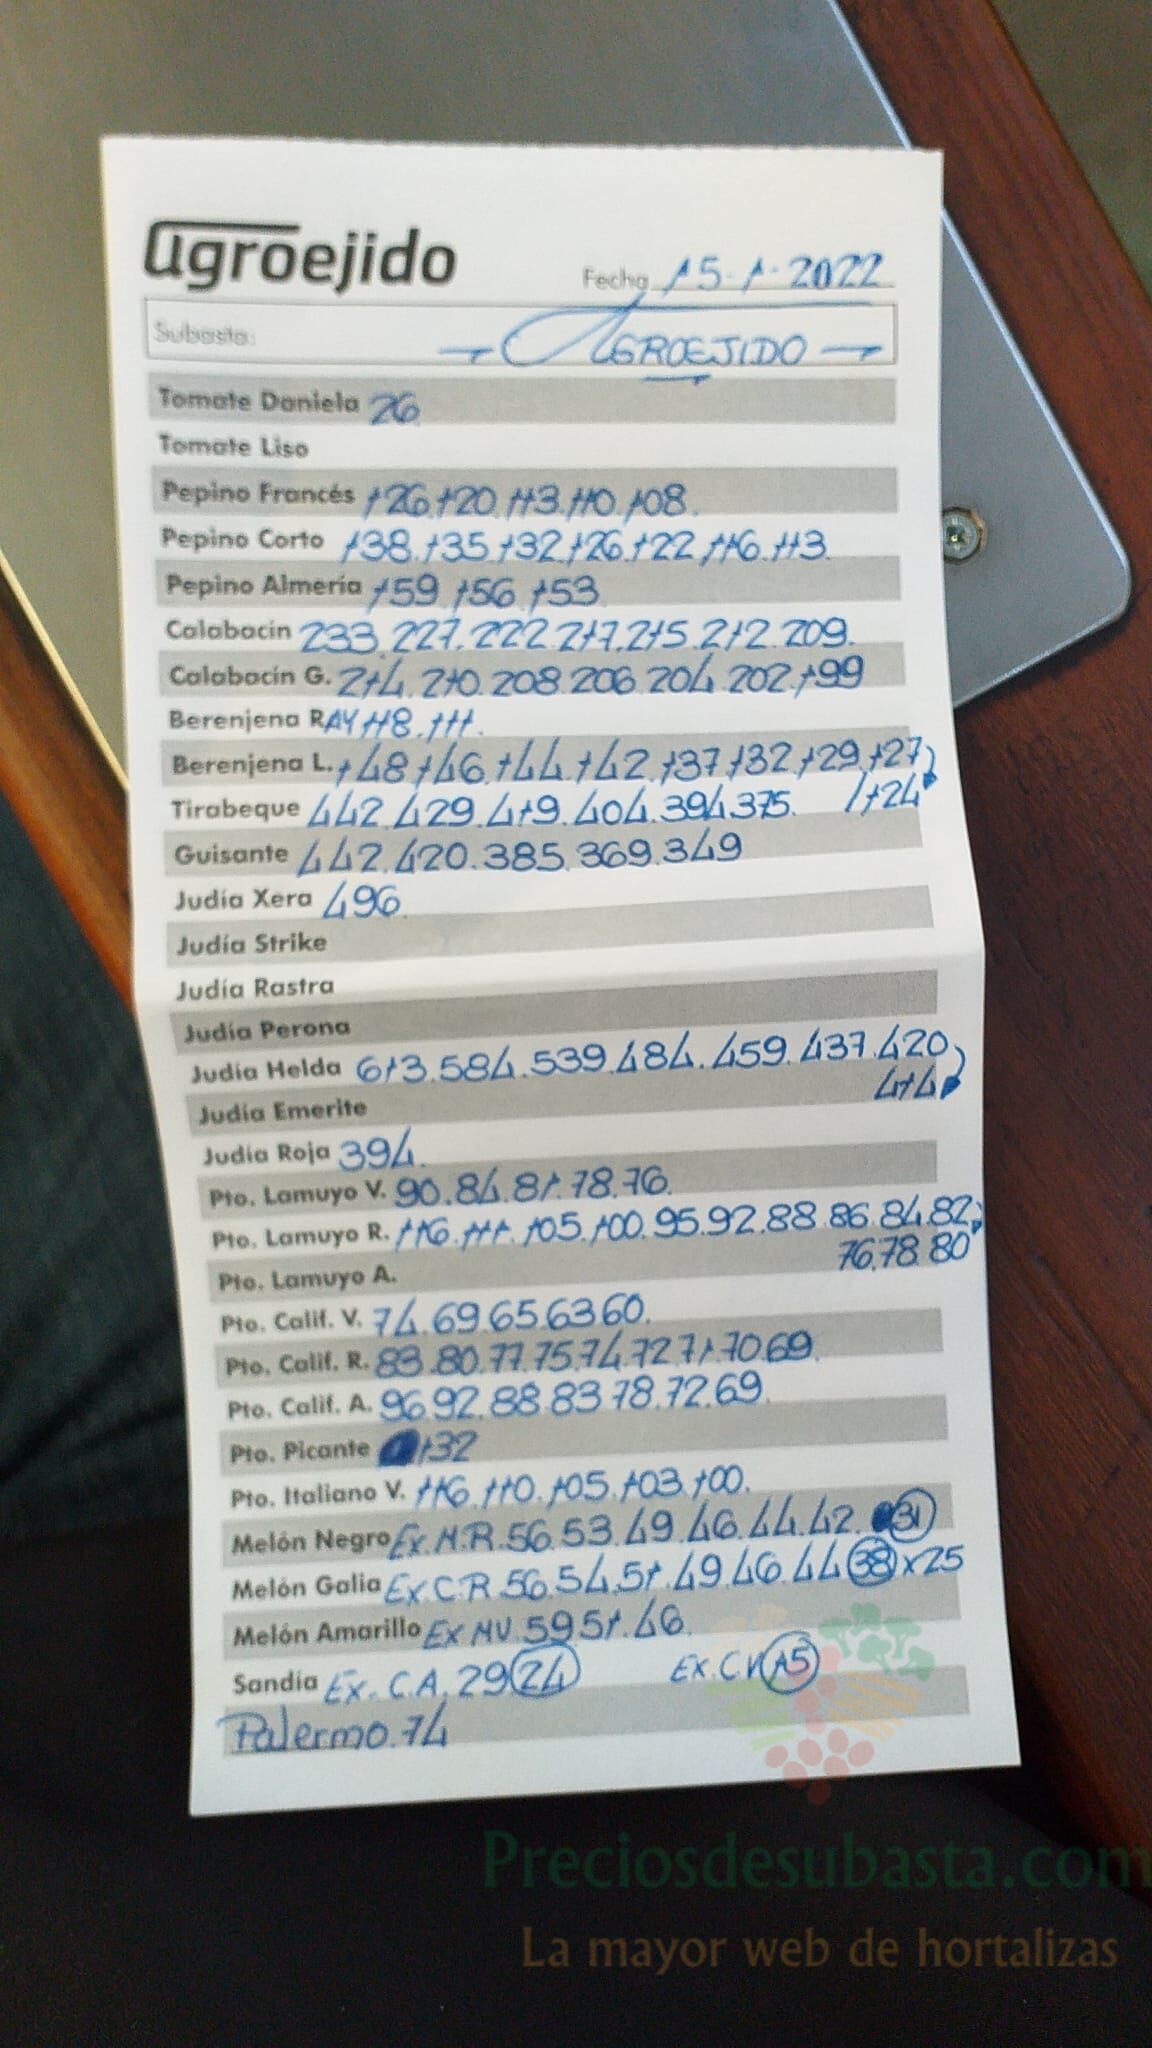 agroejido
Fecha 15-1-2022
Subasta: AGROEJIDO
Tomate Daniela 26
Tomate Liso
Pepino Francés 126.120.113.110.108.
Pepino Corto 138.135.132.126.122.116.113.
Pepino Almería 159.156.153
Calabacín 233.227.222.217.215.212.209.
Calabacín G. 214.210.208.206.204.202.199
Berenjena RAY 118.111.
Berenjena L. 148.146.144.142.137.132.129.127
Tirabeque 442.429.419.404.394.375. /124
Guisante 442.420.385.369.349
Judía Xera 496
Judía Strike
Judía Rastra
Judía Perona
Judía Helda 613.584.539.484.459.437.420
Judía Emerite 414
Judía Roja 394.
Pto. Lamuyo V. 90.84.81.78.76.
Pto. Lamuyo R. 116.111.105.100.95.92.88.86.84.82
76.78.80
Pto. Lamuyo A.
Pto. Calif. V. 74.69.65.63.60.
Pto. Calif. R. 83.80.77.75.74.72.71.70.69.
Pto. Calif. A. 96.92.88.83.78.72.69.
Pto. Picante 132
Pto. Italiano V. 116.110.105.103.100.
Melón Negro Ex.N.R.56.53.49.46.44.42. 31
Melón Galia Ex.C.R.56.54.51.49.46.44 38 x25
Melón Amarillo Ex NV.59.51.46.
Sandía Ex.C.A.29 24 EX.CV 15
Palermo.74
Preciosdesubasta.com
La mayor web de hortalizas